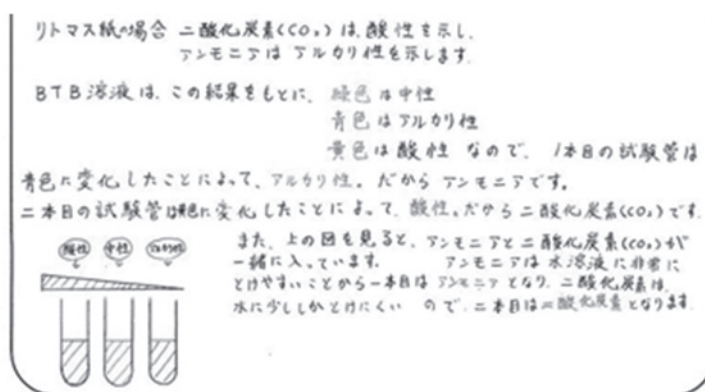 リトマス紙の場合 二酸化炭素(CO₂)は、酸性を示し、
アンモニアは アルカリ性を示します。
BTB溶液は、この結果をもとに、緑色は中性
青色はアルカリ性
黄色は酸性 なので、1本目の試験管は
青色に変化したことによって、アルカリ性。だから アンモニアです。
二本目の試験管は黄色に変化したことによって、酸性。だから二酸化炭素(CO₂)です。
また、上の図を見ると、アンモニアと二酸化炭素(CO₂)が
一緒に入っています。 アンモニアは水溶液に非常に
とけやすいことから一本目はアンモニアとなり、二酸化炭素は、
水に少ししかとけにくい ので、二本目は二酸化炭素となります。
酸性 中性 アルカリ性